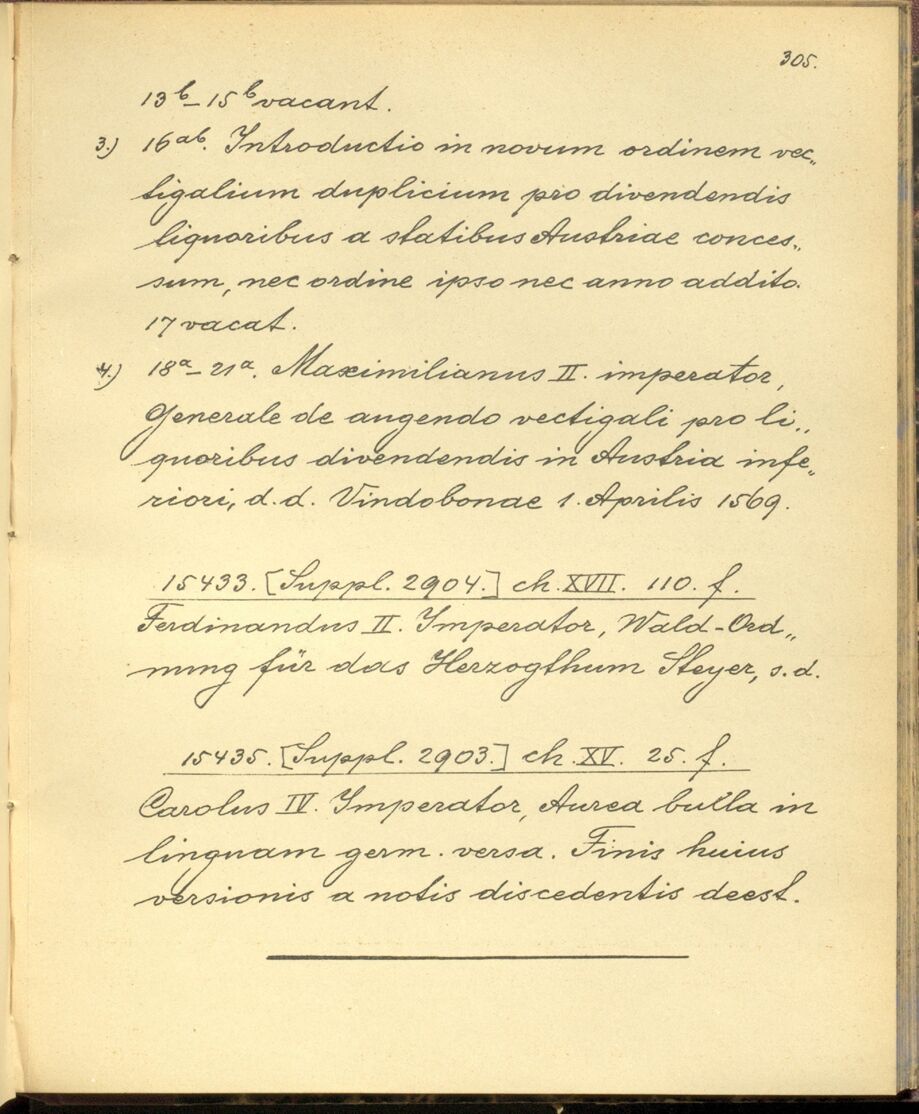 305.
13b–15b vacant.
3.) 16ab. Introductio in novum ordinem vec„
tigalium duplicium pro divendendis
liquoribus a statibus Austriae conces„
sum, nec ordine ipso nec anno addito.
17 vacat.
4.) 18a–21a. Maximilianus II. imperator,
Generale de augendo vectigali pro li„
quoribus divendendis in Austria infe„
riori, d. d. Vindobonae 1. Aprilis 1569.
15433. [Suppl. 2904.] ch. XVII. 110. f.
Ferdinandus II. Imperator, Wald-Ord„
nung für das Herzogthum Steyer, s. d.
15435. [Suppl. 2903.] ch. XV. 25. f.
Carolus IV. Imperator, Aurea bulla in
linguam germ. versa. Finis huius
versionis a notis discedentis deest.